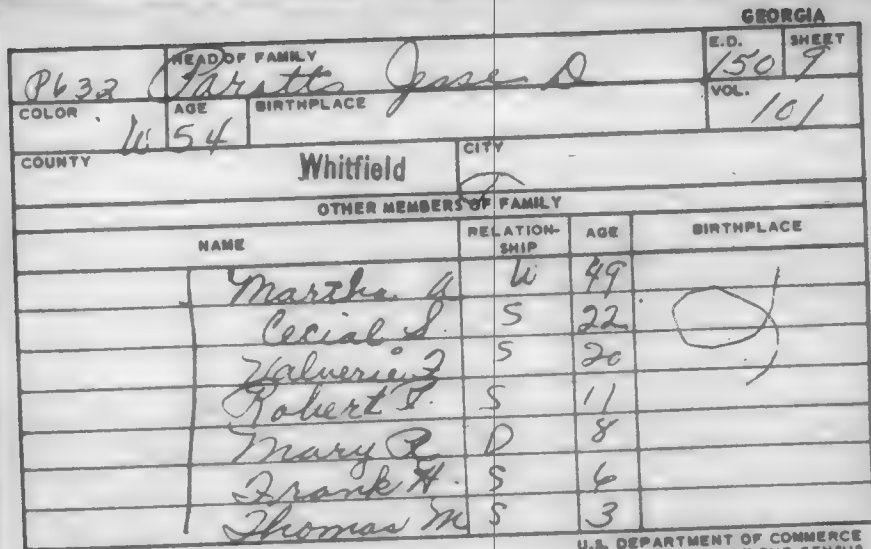 GEORGIA
HEAD OF FAMILY E.D. SHEET
P632 Jesse D 150 9
COLOR AGE BIRTHPLACE VOL.
W 54 101
COUNTY Whitfield CITY
OTHER MEMBERS OF FAMILY
NAME RELATION-SHIP AGE BIRTHPLACE
Martha A W 49
Cecial S. S 22
S 20
Robert T. S 11
Mary R D 8
Frank H. S 6
Thomas M S 3
U.S. DEPARTMENT OF COMMERCE